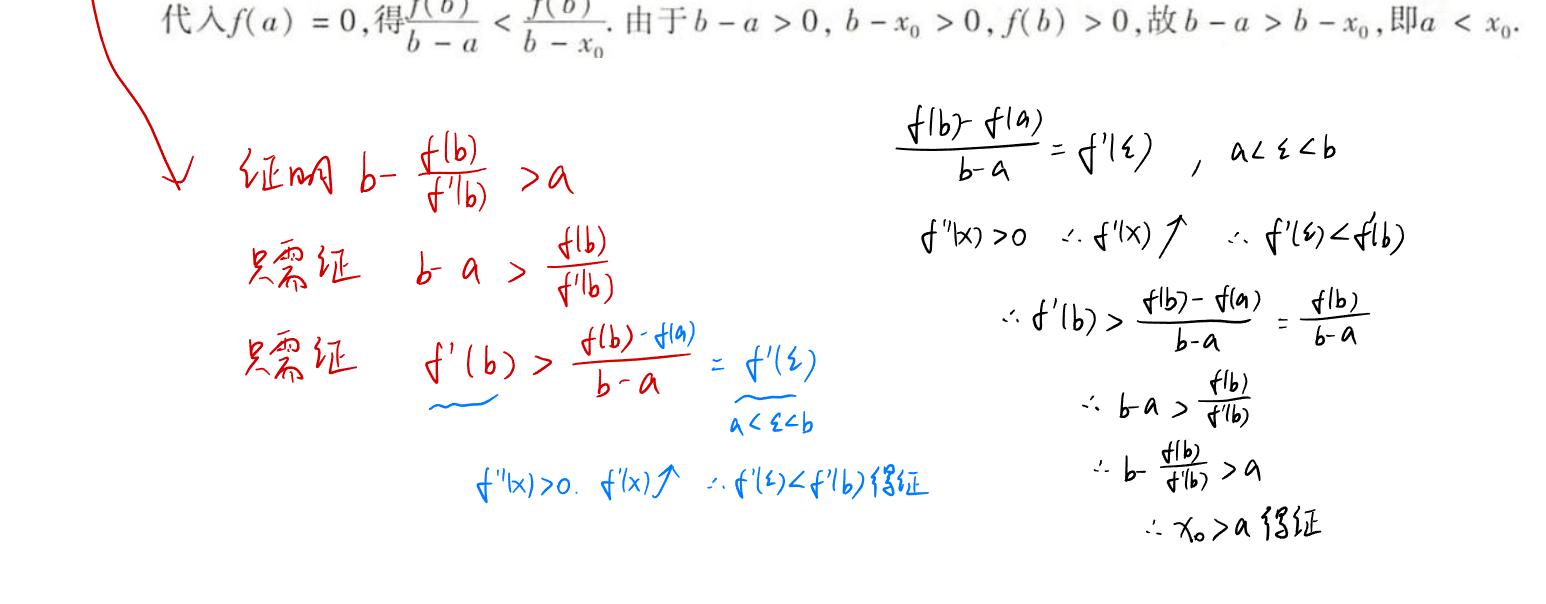 代入f(a) = 0,得f(b)/(b − a) < f(b)/(b − x₀). 由于b − a > 0, b − x₀ > 0, f(b) > 0,故b − a > b − x₀,即a < x₀.
证明 b - f(b)/f'(b) > a
只需证 b - a > f(b)/f'(b)
只需证 f'(b) > (f(b) - f(a))/(b - a) = f'(ξ)
a < ξ < b
f''(x) > 0. f'(x)↑ ∴ f'(ξ) < f'(b) 得证
(f(b) - f(a))/(b - a) = f'(ξ) , a < ξ < b
f''(x) > 0 ∴ f'(x)↑ ∴ f'(ξ) < f'(b)
∴ f'(b) > (f(b) - f(a))/(b - a) = f(b)/(b - a)
∴ b - a > f(b)/f'(b)
∴ b - f(b)/f'(b) > a
∴ x₀ > a 得证